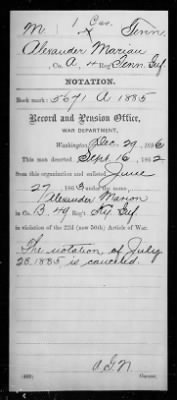 M | 1 Cav. | Tenn.
Alexander Marian
Co. A, 4 Reg't Tenn. Inf.
NOTATION.
Book mark: 5671 A 1885
Record and Pension Office,
WAR DEPARTMENT,
Washington, Dec. 29, 1896
This man deserted Sept. 16, 1862
from this organization and enlisted June
27, 1863 under the name,
Alexander Marion
in Co. B. 49 Reg't Ky. Inf.
in violation of the 22d (now 50th) Article of War.
The notation of July
25. 1885 is canceled.
Copyist.